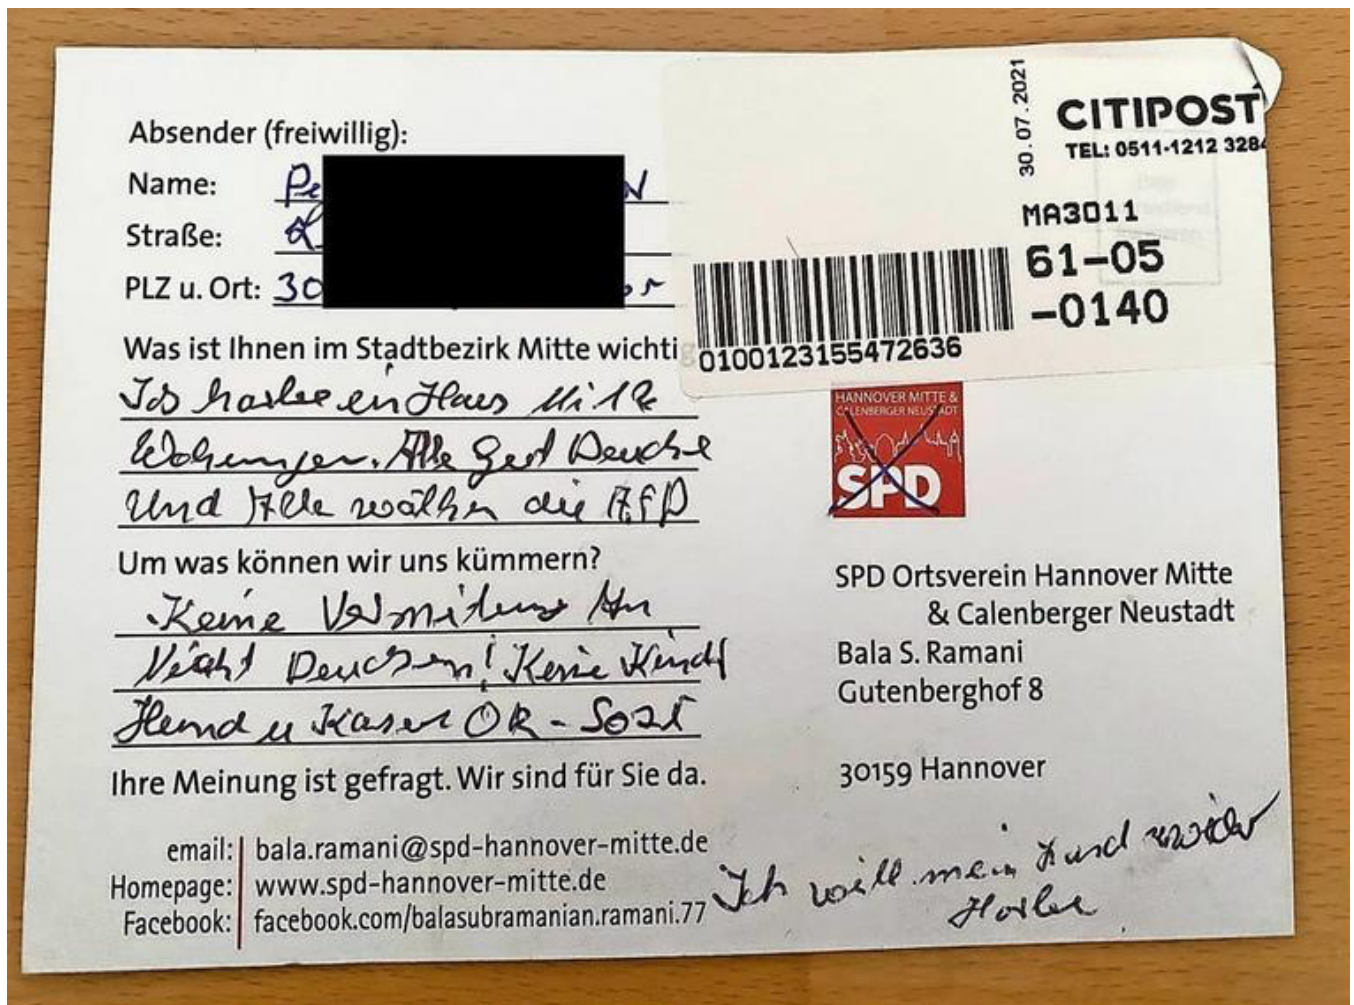 Absender (freiwillig):
Name: Pe N
Straße:
PLZ u. Ort: 30 or
Was ist Ihnen im Stadtbezirk Mitte wichtig
Ich habe ein Haus Mit 12
Wohungen. Alle Gut Deuche
Und Alle wälhen die AFD
Um was können wir uns kümmern?
Keine Vermitung An
Nicht Deuchen! Keine Kind
Hund u Kazen OK -
Ihre Meinung ist gefragt. Wir sind für Sie da.
email: bala.ramani@spd-hannover-mitte.de
Homepage: www.spd-hannover-mitte.de
Facebook: facebook.com/balasubramanian.ramani.77
30.07.2021
CITIPOST
TEL: 0511-1212 3284
MA3011
61-05
-0140
0100123155472636
HANNOVER MITTE &
CALENBERGER NEUSTADT
SPD
SPD Ortsverein Hannover Mitte
& Calenberger Neustadt
Bala S. Ramani
Gutenberghof 8
30159 Hannover
Ich will mein Land wider
Haben